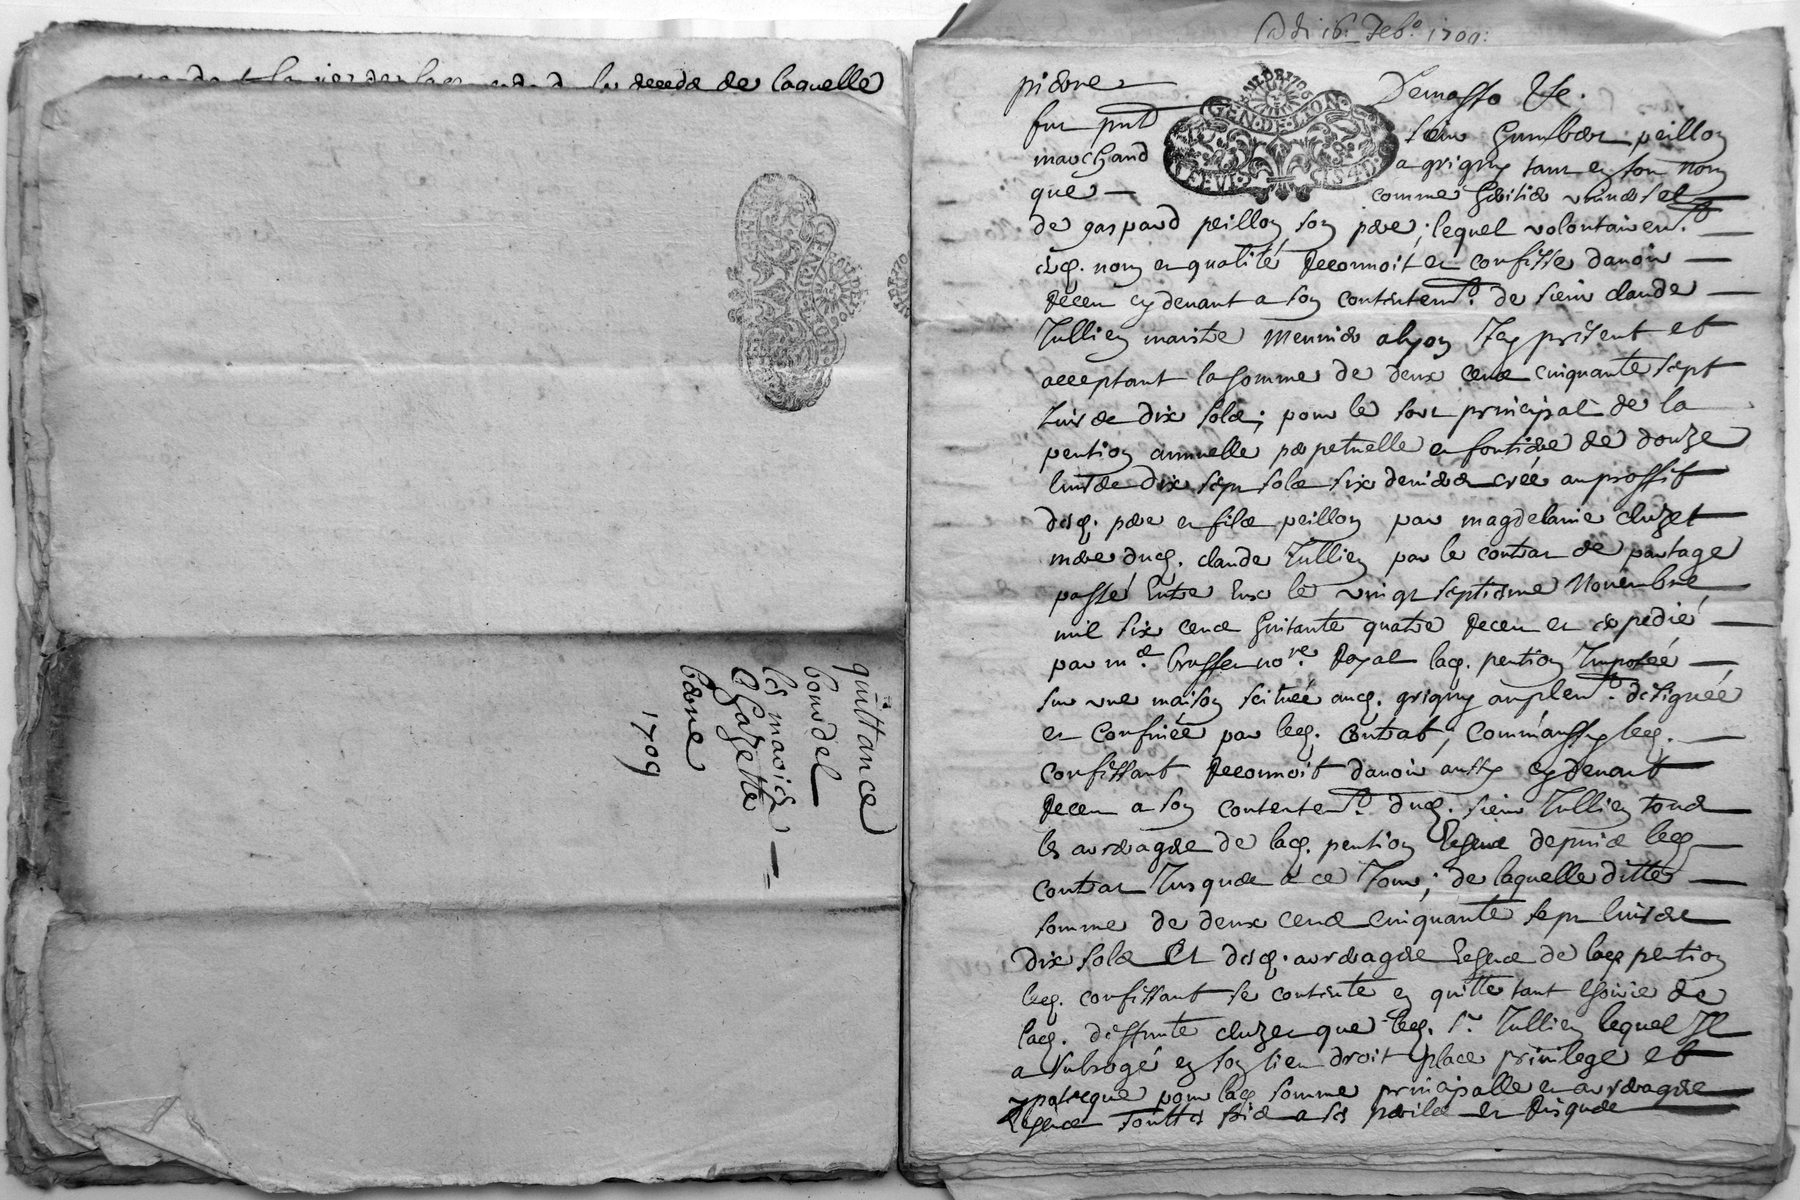 de laquelle
quittance
bourdel
les mariés
Gazette
1709
16 Feb.o 1709
GEN·DE·LION·
pardevant
fut pnt
sieur peillon
marchand
a grigny tant en son nom
que
comme heritier universel
de gaspard peillon son pere; lequel volontairemt.
esd. nom et qualité reconnoit et confesse d'avoir
receu cy devant a son contentemt. de sieur claude
Jullien maistre a lyon Icy present et
acceptant la somme de deux cens cinquante sept
livres dix sols; pour le sort principal de la
pention annuelle perpetuelle et fontiere de douze
livres dix sept sols six deniers creé au proffit
desd. pere et fils peillon par magdelaine cluzet
mere dud. claude Jullien par le contrat de partage
passé Entre Eux le vingt septieme Novembre
mil six cens huitante quatre receu et expedié
par me. no.re Royal lad. pention Imposée
sur une maison scituée aud. grigny amplemt. designée
et confinée par led. contrat, comm'aussy led.
confessant reconnoit d'avoir aussy cy devant
receu a son contentemt. dud. sieur Jullien tous
les arrerages de lad. pention Escheus depuis led.
contrat Jusques a ce Jour; de laquelle ditte
somme de deux cens cinquante sept livres
dix sols Et desd. arrerages Escheus de lad. pention
led. confessant se contente et quitte tant l'hoirie de
lad. deffunte cluzet que led. sr. Jullien lequel Il
a subrogé en son lieu droit place privilege et
ypoteque pour lad. somme principalle et arrerages
Escheus a ses perils et risques